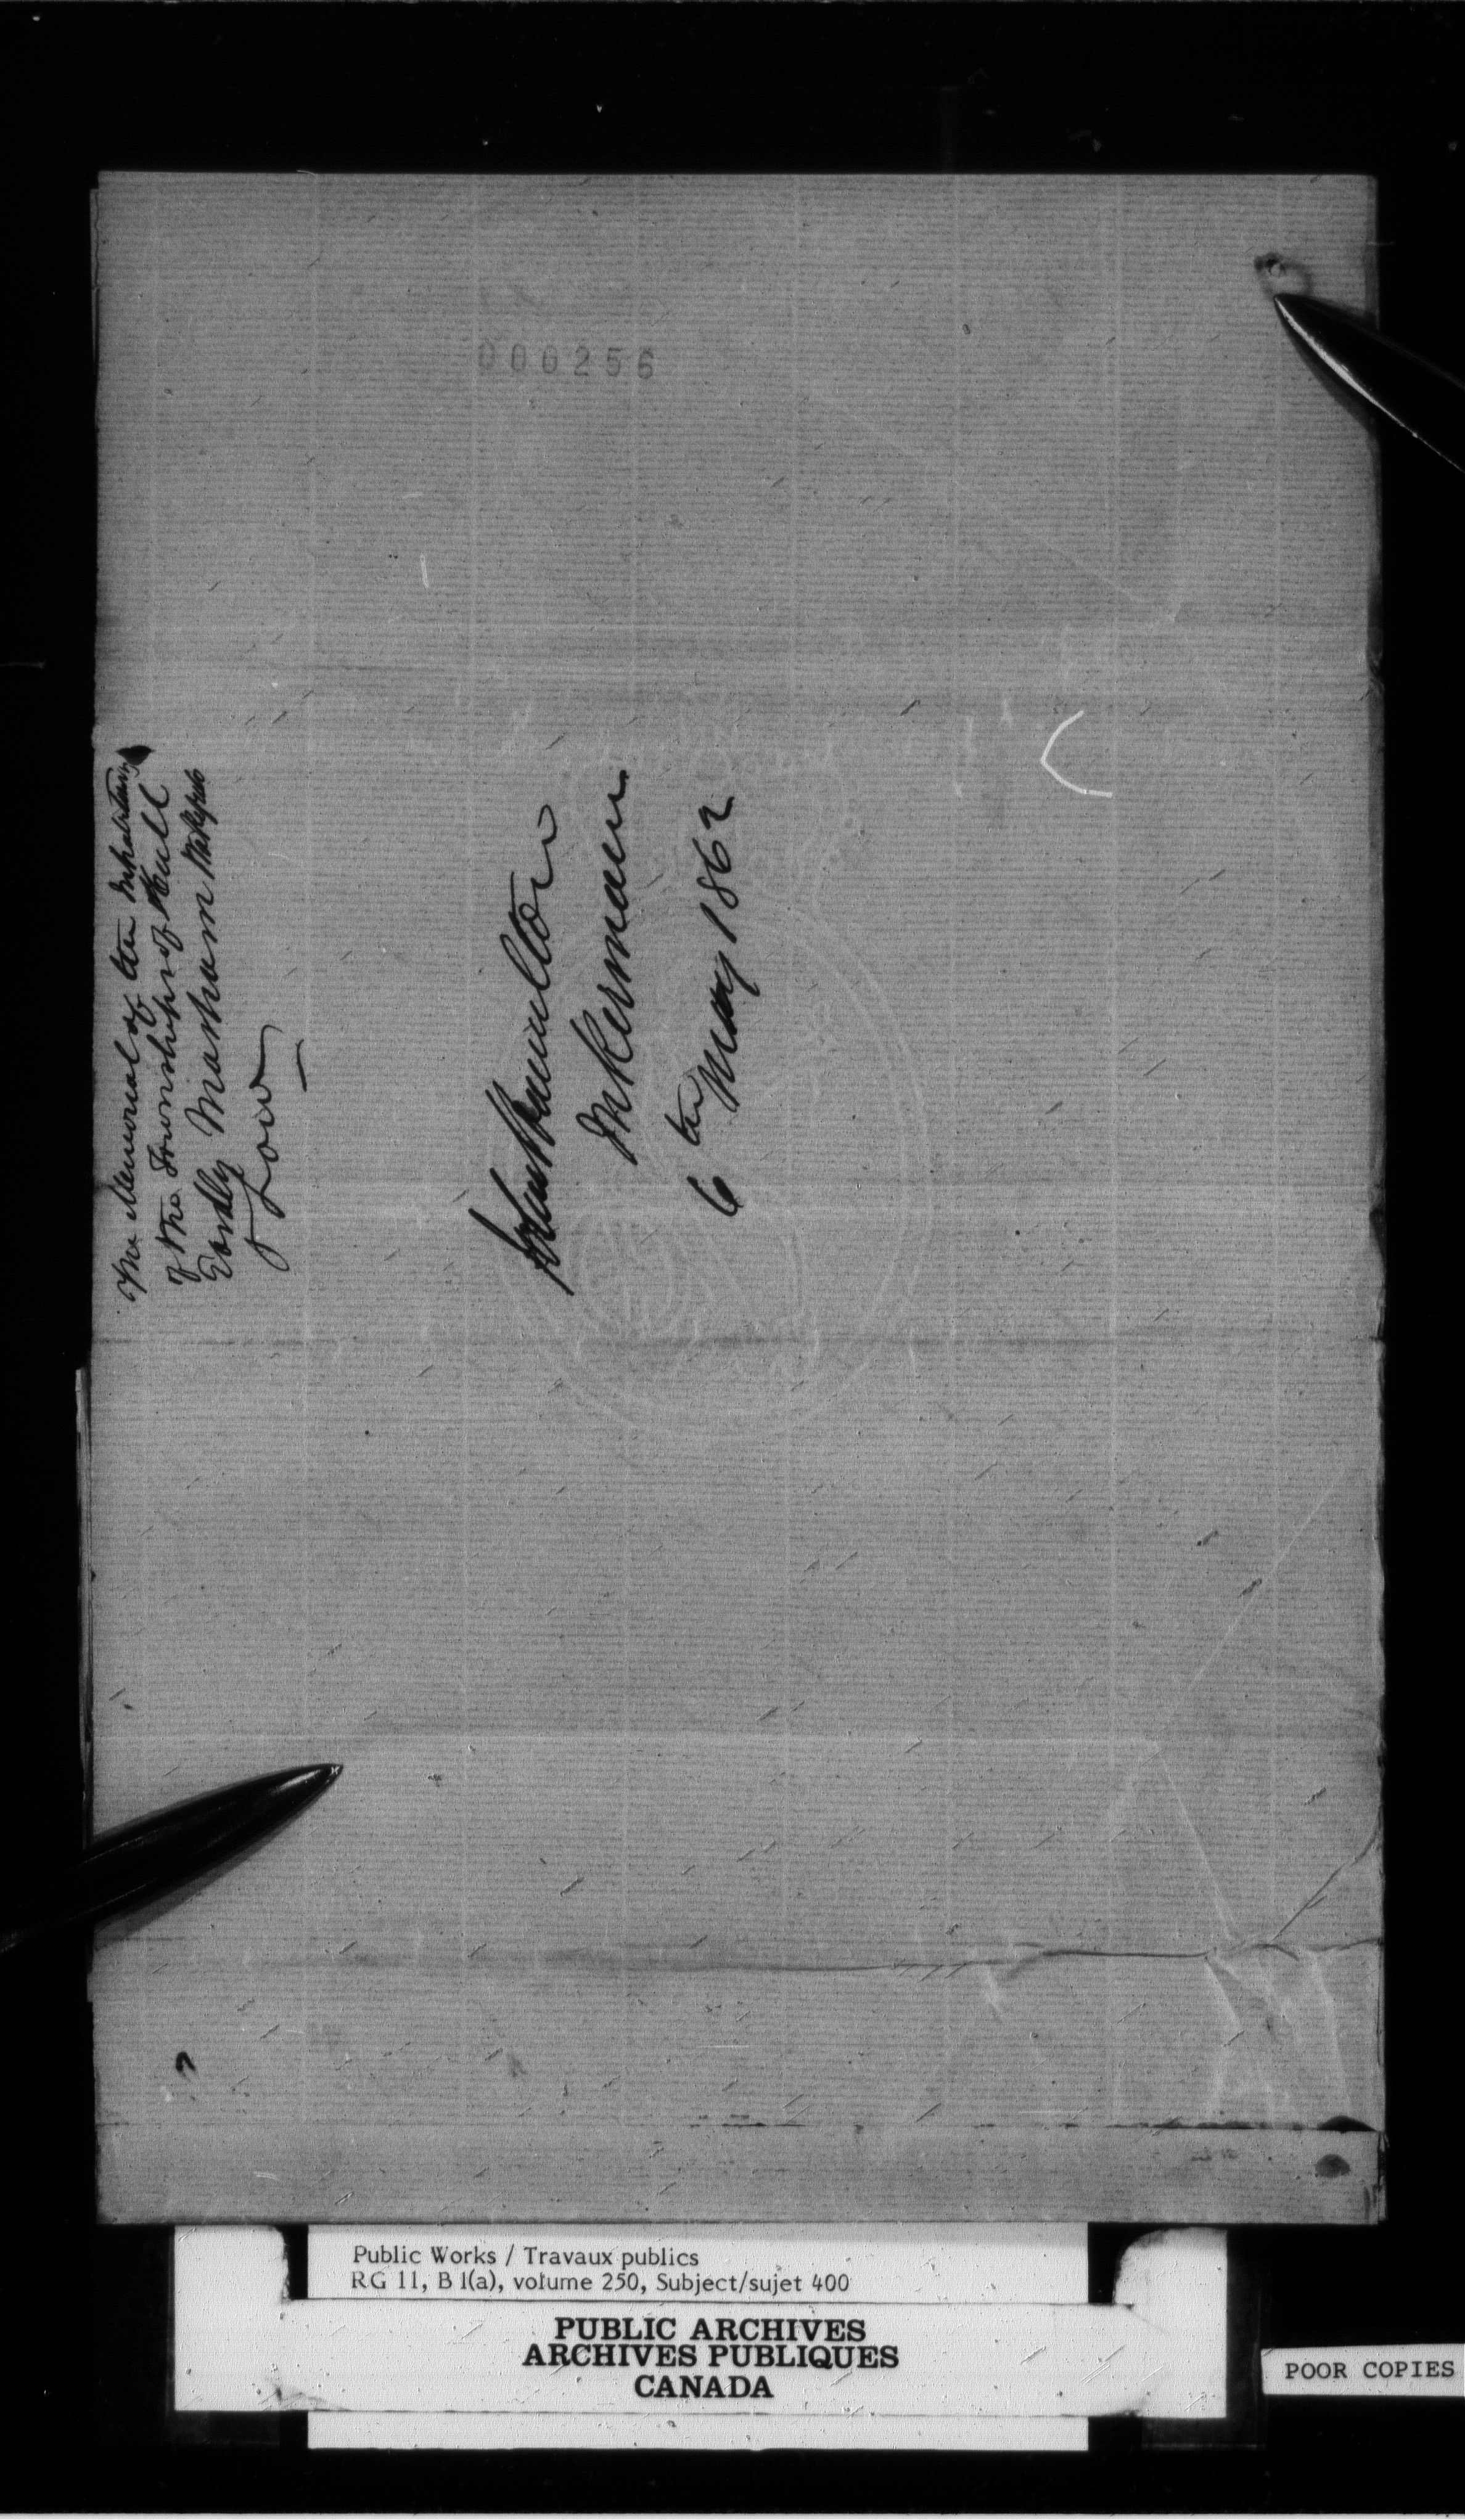 000256
The Memorial of the Inhabitants
of the Townships of Hull
Eardly Masham Wakefield
Low
John Hamilton
Inkermann
6th May 1862
Public Works / Travaux publics
RG 11, B 1(a), volume 250, Subject/sujet 400
PUBLIC ARCHIVES
ARCHIVES PUBLIQUES
CANADA
POOR COPIES